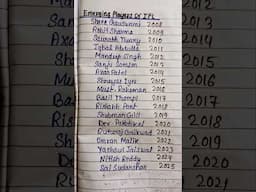 Emerging Players Of IPL
Shree Goswami 2008
Rohit Sharma 2009
Saurabh Tiwary 2010
Iqbal Abdulla 2011
Mandeep Singh 2012
Sanju Samson 2013
Axar Patel 2014
Shreyas Iyer 2015
Must. Rahman 2016
Basil Thampi 2017
Rishabh Pant 2018
Shubman Gill 2019
Dev. Padikkal 2020
Ruturaj Gaikwad 2021
Umran Malik 2022
Yashasvi Jaiswal 2023
Nitish Reddy 2024
Sai Sudarshan 2025